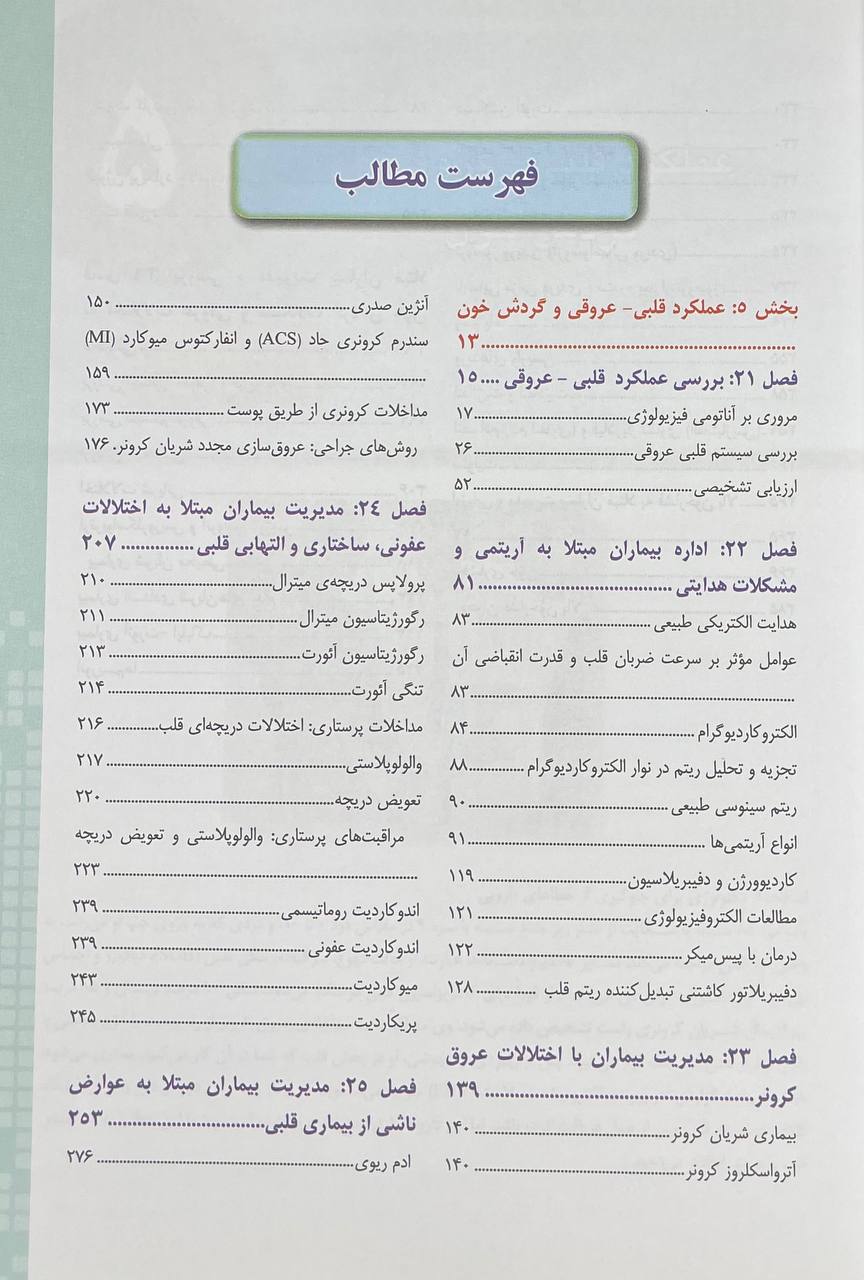 فهرست مطالب
بخش ۵: عملکرد قلبی- عروقی و گردش خون
۱۳
فصل ۲۱: بررسی عملکرد قلبی - عروقی .... ۱۵
مروری بر آناتومی فیزیولوژی ۱۷
بررسی سیستم قلبی عروقی ۲۶
ارزیابی تشخیصی ۵۲
فصل ۲۲: اداره بیماران مبتلا به آریتمی و
مشکلات هدایتی ۸۱
هدایت الکتریکی طبیعی ۸۳
عوامل مؤثر بر سرعت ضربان قلب و قدرت انقباضی آن
۸۳
الکتروکاردیوگرام ۸۴
تجزیه و تحلیل ریتم در نوار الکتروکاردیوگرام ۸۸
ریتم سینوسی طبیعی ۹۰
انواع آریتمی‌ها ۹۱
کاردیوورژن و دفیبریلاسیون ۱۱۹
مطالعات الکتروفیزیولوژی ۱۲۱
درمان با پیس‌میکر ۱۲۲
دفیبریلاتور کاشتنی تبدیل‌کننده ریتم قلب ۱۲۸
فصل ۲۳: مدیریت بیماران با اختلالات عروق
کرونر ۱۳۹
بیماری شریان کرونر ۱۴۰
آترواسکلروز کرونر ۱۴۰
آنژین صدری ۱۵۰
سندرم کرونری حاد (ACS) و انفارکتوس میوکارد (MI)
۱۵۹
مداخلات کرونری از طریق پوست ۱۷۳
روش‌های جراحی: عروق‌سازی مجدد شریان کرونر. ۱۷۶
فصل ۲۴: مدیریت بیماران مبتلا به اختلالات
عفونی، ساختاری و التهابی قلبی ۲۰۷
پرولاپس دریچه‌ی میترال ۲۱۰
رگورژیتاسیون میترال ۲۱۱
رگورژیتاسیون آئورت ۲۱۳
تنگی آئورت ۲۱۴
مداخلات پرستاری: اختلالات دریچه‌ای قلب ۲۱۶
والولوپلاستی ۲۱۷
تعویض دریچه ۲۲۰
مراقبت‌های پرستاری: والولوپلاستی و تعویض دریچه
۲۲۳
اندوکاردیت روماتیسمی ۲۳۹
اندوکاردیت عفونی ۲۳۹
میوکاردیت ۲۴۳
پریکاردیت ۲۴۵
فصل ۲۵: مدیریت بیماران مبتلا به عوارض
ناشی از بیماری قلبی ۲۵۳
ادم ریوی ۲۷۶